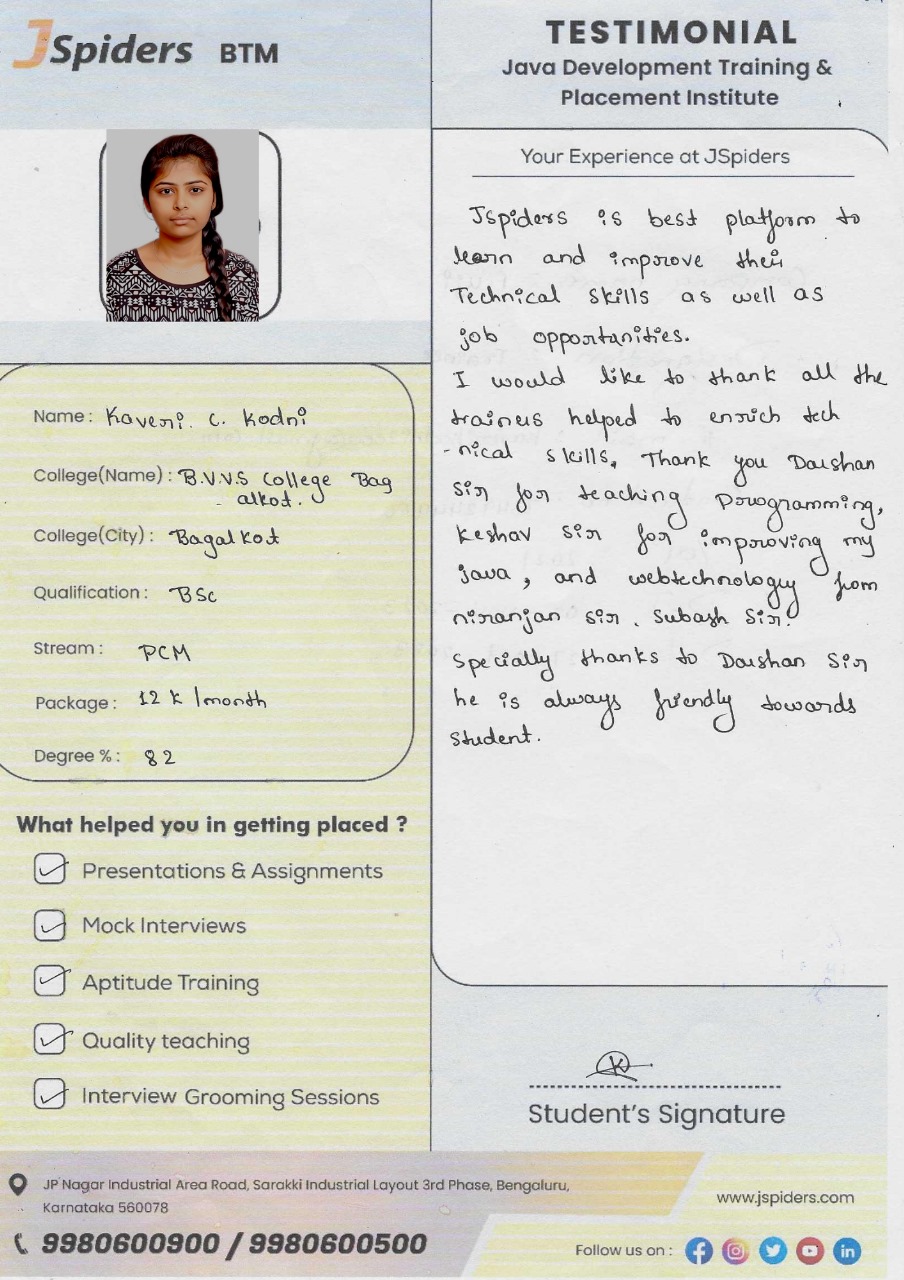 JSpiders BTM
TESTIMONIAL
Java Development Training &
Placement Institute
Name : Kaveri. C. Kodni
College(Name) : B.V.V.S College Bag
alkot.
College(City) : Bagalkot
Qualification : BSc
Stream : PCM
Package : 12 k /month
Degree % : 82
What helped you in getting placed ?
Presentations & Assignments
Mock Interviews
Aptitude Training
Quality teaching
Interview Grooming Sessions
Your Experience at JSpiders
Jspiders is best platform to
learn and improve their
Technical skills as well as
job opportunities.
I would like to thank all the
trainers helped to enrich tech
-nical skills, Thank you Darshan
sir for teaching programming,
keshav sir for improving my
java, and webtechnology from
niranjan sir. Subash Sir.
Specially thanks to Darshan Sir
he is always friendly towards
student.
K
Student's Signature
JP Nagar Industrial Area Road, Sarakki Industrial Layout 3rd Phase, Bengaluru,
Karnataka 560078
9980600900 / 9980600500
www.jspiders.com
Follow us on :